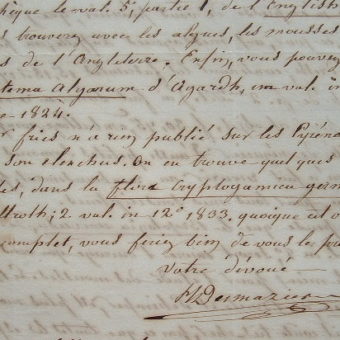 thèque le vol. 5, partie 1, de l'English
trouverez avec les algues, les mousses
de l'Angleterre. Enfin, vous pouvez
stema algarum d'Agardh, un vol. in
1824.
fries n'a rien publié sur les Pyréno
son elenchus. on en trouve quelques
dans la flora cryptogamica germ
llroth; 2 vol. in 12° 1833. quoique cet o
complet, vous feriez bien de vous le
votre dévoué
Desmazier